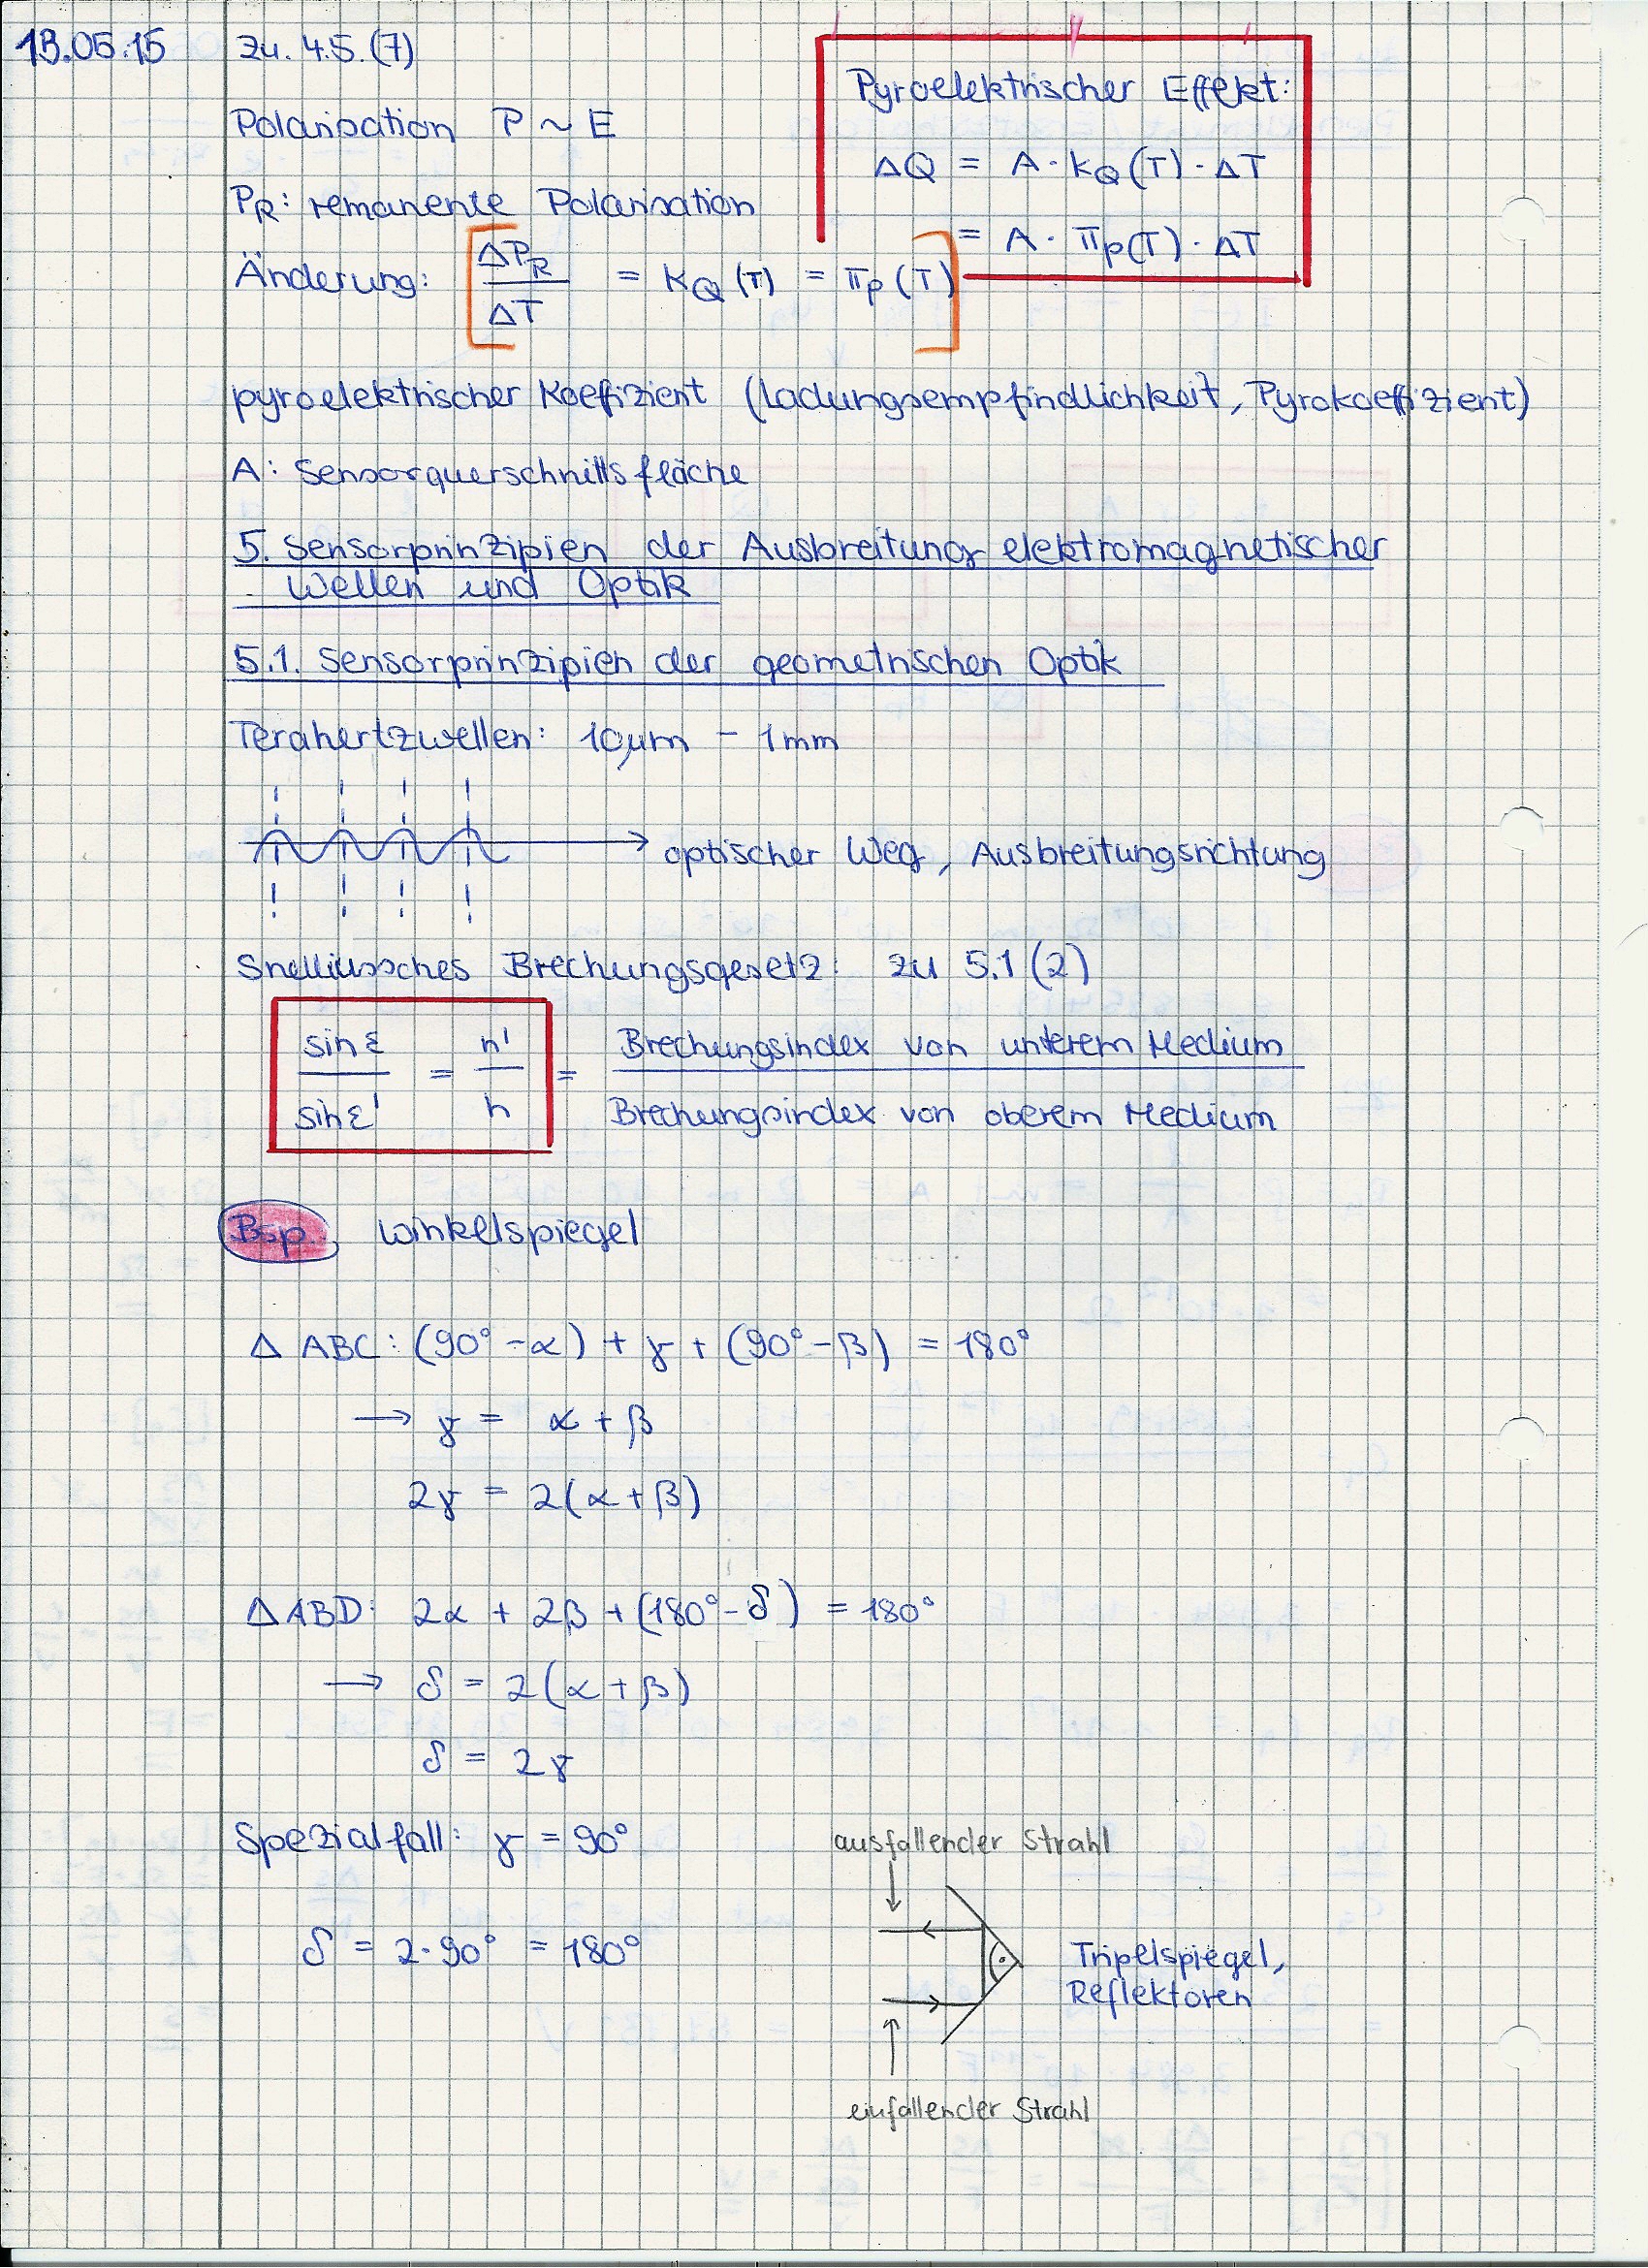 13.05.15 zu. 4.5.(7)
Pyroelektrischer Effekt:
ΔQ = A · k_Q(T) · ΔT
= A · π_P(T) · ΔT
Polarisation P ~ E
P_R: remanente Polarisation
Änderung: [ΔP_R / ΔT = k_Q(T) = π_P(T)]
pyroelektrischer Koeffizient (Ladungsempfindlichkeit, Pyrokoeffizient)
A: Sensorquerschnittsfläche
5. Sensorprinzipien der Ausbreitung elektromagnetischer
Wellen und Optik
5.1. Sensorprinzipien der geometrischen Optik
Terahertzwellen: 10µm – 1mm
optischer Weg, Ausbreitungsrichtung
Snelliussches Brechungsgesetz: zu 5.1(2)
sin ε / sin ε' = n' / n = Brechungsindex von unterem Medium / Brechungsindex von oberem Medium
Bsp. Winkelspiegel
Δ ABC: (90° - α) + γ + (90° - β) = 180°
→ γ = α + β
2γ = 2(α + β)
Δ ABD: 2α + 2β + (180° - δ) = 180°
→ δ = 2(α + β)
δ = 2γ
Spezialfall: γ = 90°
δ = 2·90° = 180°
ausfallender Strahl
Tripelspiegel,
Reflektoren
einfallender Strahl